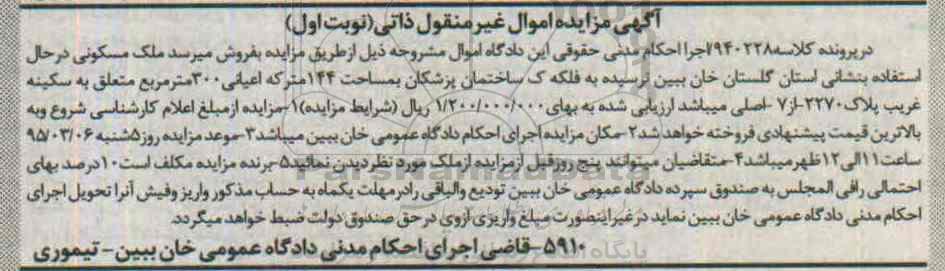 آگهی مزایده اموال غیر منقول ذاتی(نوبت اول)
در پرونده کلاسه۹۴۰۲۲۸/اجرا احکام مدنی حقوقی این دادگاه اموال مشروحه ذیل از طریق مزایده بفروش میرسد ملک مسکونی در حال
استفاده بنشانی استان گلستان خان ببین نرسیده به فلکه ک ساختمان پزشکان بمساحت ۱۴۴متر که اعیانی ۳۰۰مترمربع متعلق به سکینه
غریب پلاک ۲۲۷۰-از۷ -اصلی میباشد ارزیابی شده به بهای ۱/۲۰۰/۰۰۰/۰۰۰ ریال (شرایط مزایده)۱-مزایده از مبلغ اعلام کارشناسی شروع وبه
بالاترین قیمت پیشنهادی فروخته خواهد شد۲-مکان مزایده اجرای احکام دادگاه عمومی خان ببین میباشد۳-موعد مزایده روز۵شنبه ۹۵/۰۳/۰۶
ساعت۱۱الی۱۲ظهر میباشد۴-متقاضیان میتوانند پنج روزقبل از مزایده از ملک مورد نظر دیدن نمائید۵-برنده مزایده مکلف است۱۰درصد بهای
احتمالی رافی المجلس به صندوق سپرده دادگاه عمومی خان ببین تودیع والباقی رادر مهلت یکماه به حساب مذکور واریز وفیش آنرا تحویل اجرای
احکام مدنی دادگاه عمومی خان ببین نماید در غیر اینصورت مبلغ واریزی ازوی در حق صندوق دولت ضبط خواهد میگردد.
۵۹۱۰-قاضی اجرای احکام مدنی دادگاه عمومی خان ببین- تیموری